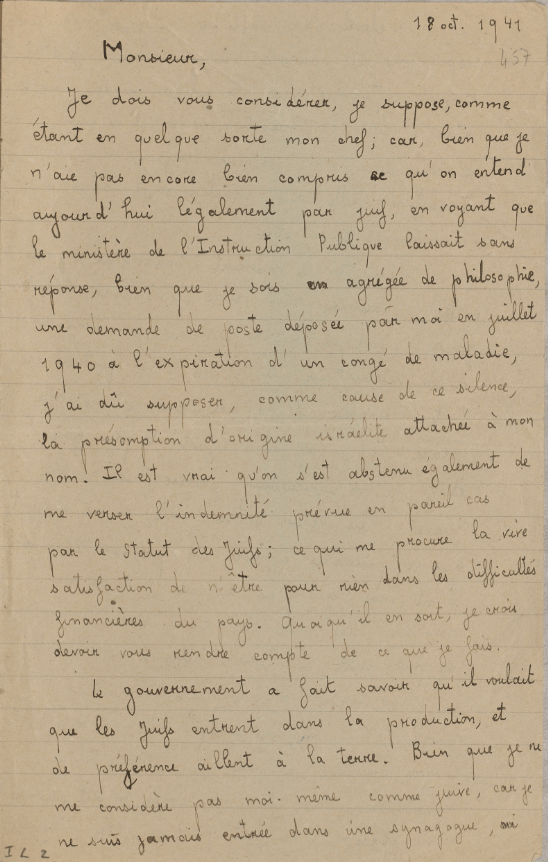 18 oct. 1941
457
Monsieur,
Je dois vous considérer, je suppose, comme
étant en quelque sorte mon chef ; car, bien que je
n'aie pas encore bien compris ce qu'on entend
aujourd'hui légalement par juif, en voyant que
le ministère de l'Instruction Publique laissait sans
réponse, bien que je sois agrégée de philosophie,
une demande de poste déposée par moi en juillet
1940 à l'expiration d'un congé de maladie,
j'ai dû supposer, comme cause de ce silence,
la présomption d'origine israélite attachée à mon
nom. Il est vrai qu'on s'est abstenu également de
me verser l'indemnité prévue en pareil cas
par le Statut des Juifs ; ce qui me procure la vive
satisfaction de n'être pour rien dans les difficultés
financières du pays. Quoiqu'il en soit, je crois
devoir vous rendre compte de ce que je fais.
Le gouvernement a fait savoir qu'il voulait
que les Juifs entrent dans la production, et
de préférence aillent à la terre. Bien que je ne
me considère pas moi-même comme juive, car je
ne suis jamais entrée dans une synagogue, ni
I L 2